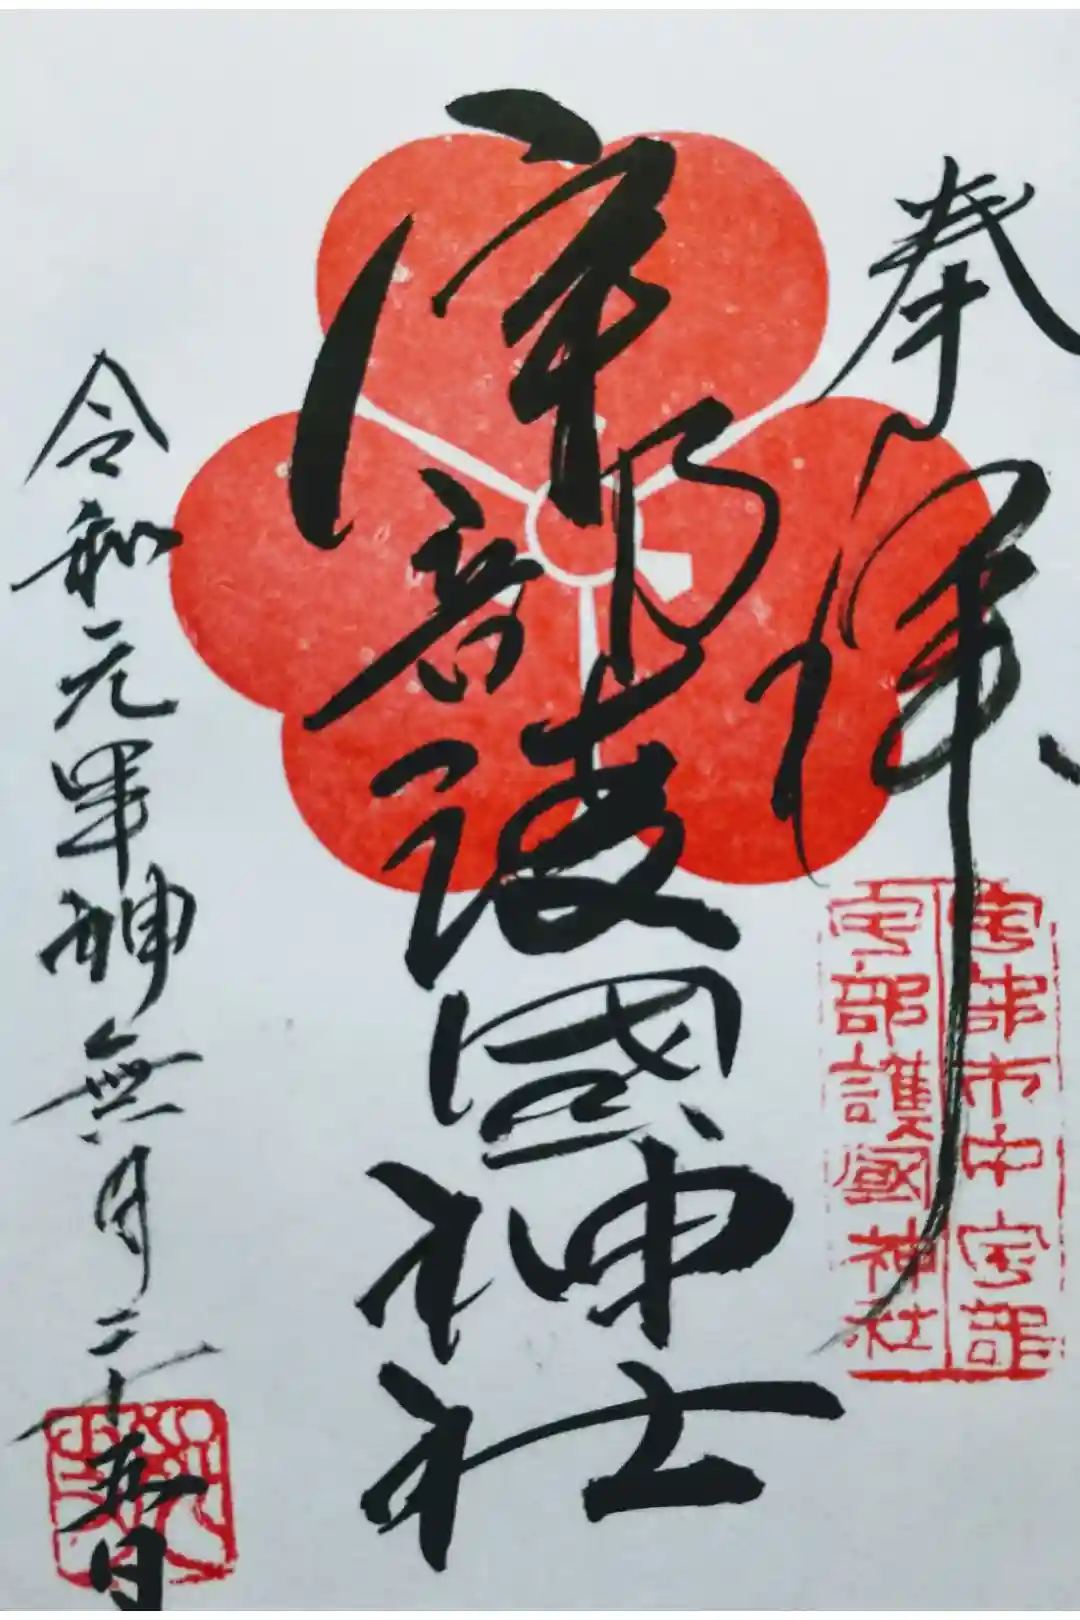 奉拝
宇部市中宇部
宇部護國神社
宇部護國神社
令和元年神無月二十五日